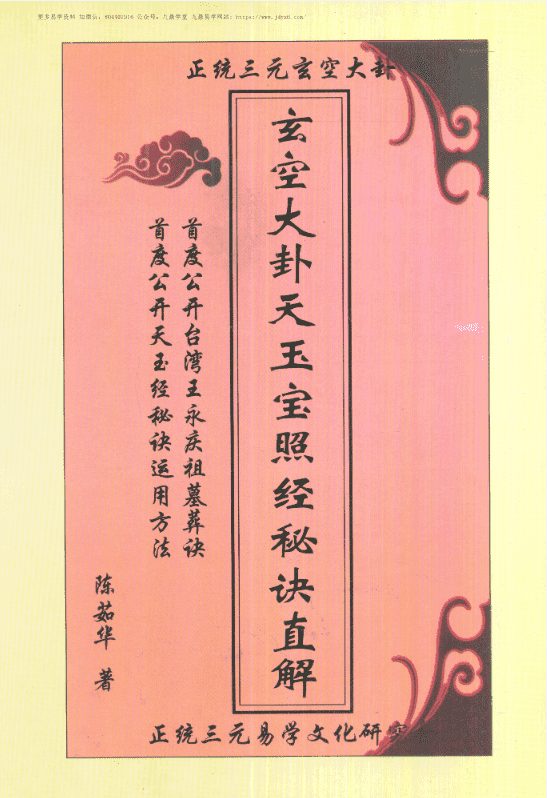 更多易学资料 加微信：804402916 公众号：九鼎学堂 九鼎易学网站：https://www.jdyx6.com/
正统三元玄空大卦
玄空大卦天玉宝照经秘诀直解
首度公开台湾王永庆祖墓葬诀
首度公开天玉经秘诀运用方法
陈茹华 著
正统三元易学文化研究